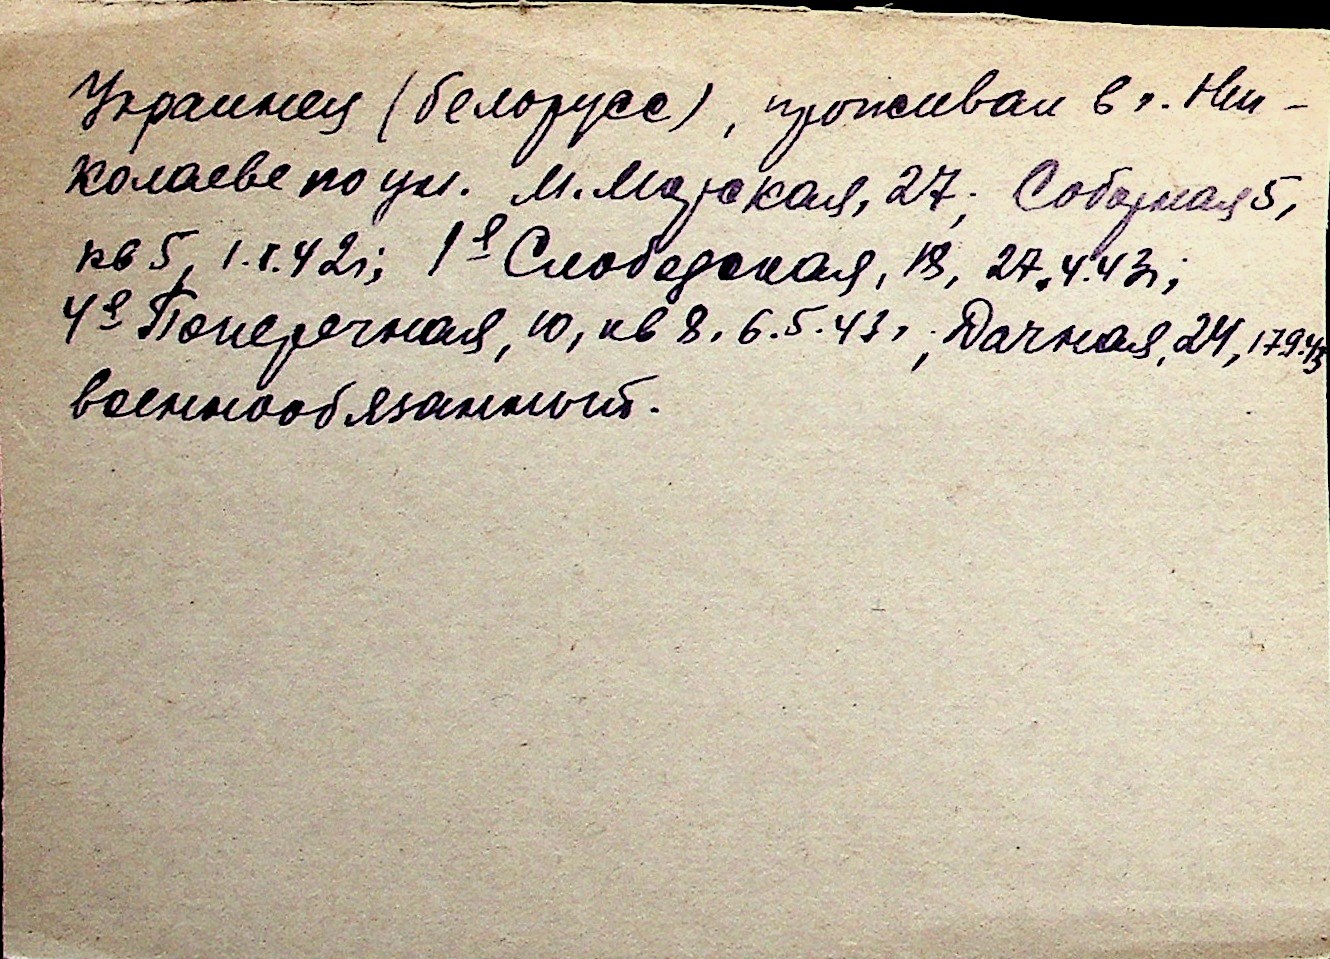 Украинец (белорусс), проживал в г. Ни-
колаеве по ул. М.Морская, 27; Соборная 5,
кв 5, 1.X.42г; 1я Слободская, 18, 27.4.43г;
4я Поперечная, 10, кв 8. 6.5.43г; Дачная, 24, 17.9.43
военнообязанный.